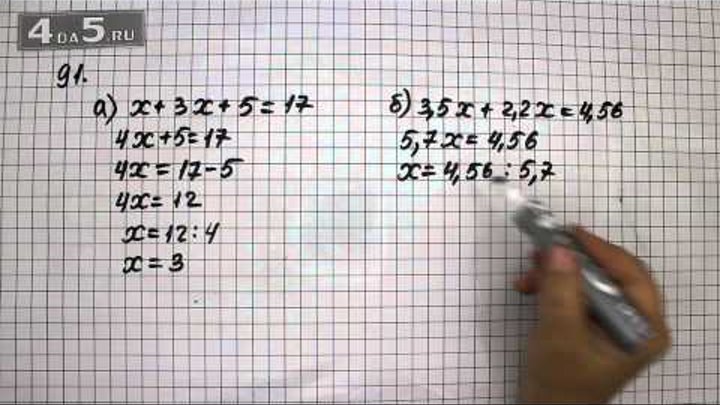 4 DA 5 .RU
91.
а) x + 3x + 5 = 17
4x + 5 = 17
4x = 17 - 5
4x = 12
x = 12 : 4
x = 3
б) 3,5x + 2,2x = 4,56
5,7x = 4,56
x = 4,56 : 5,7